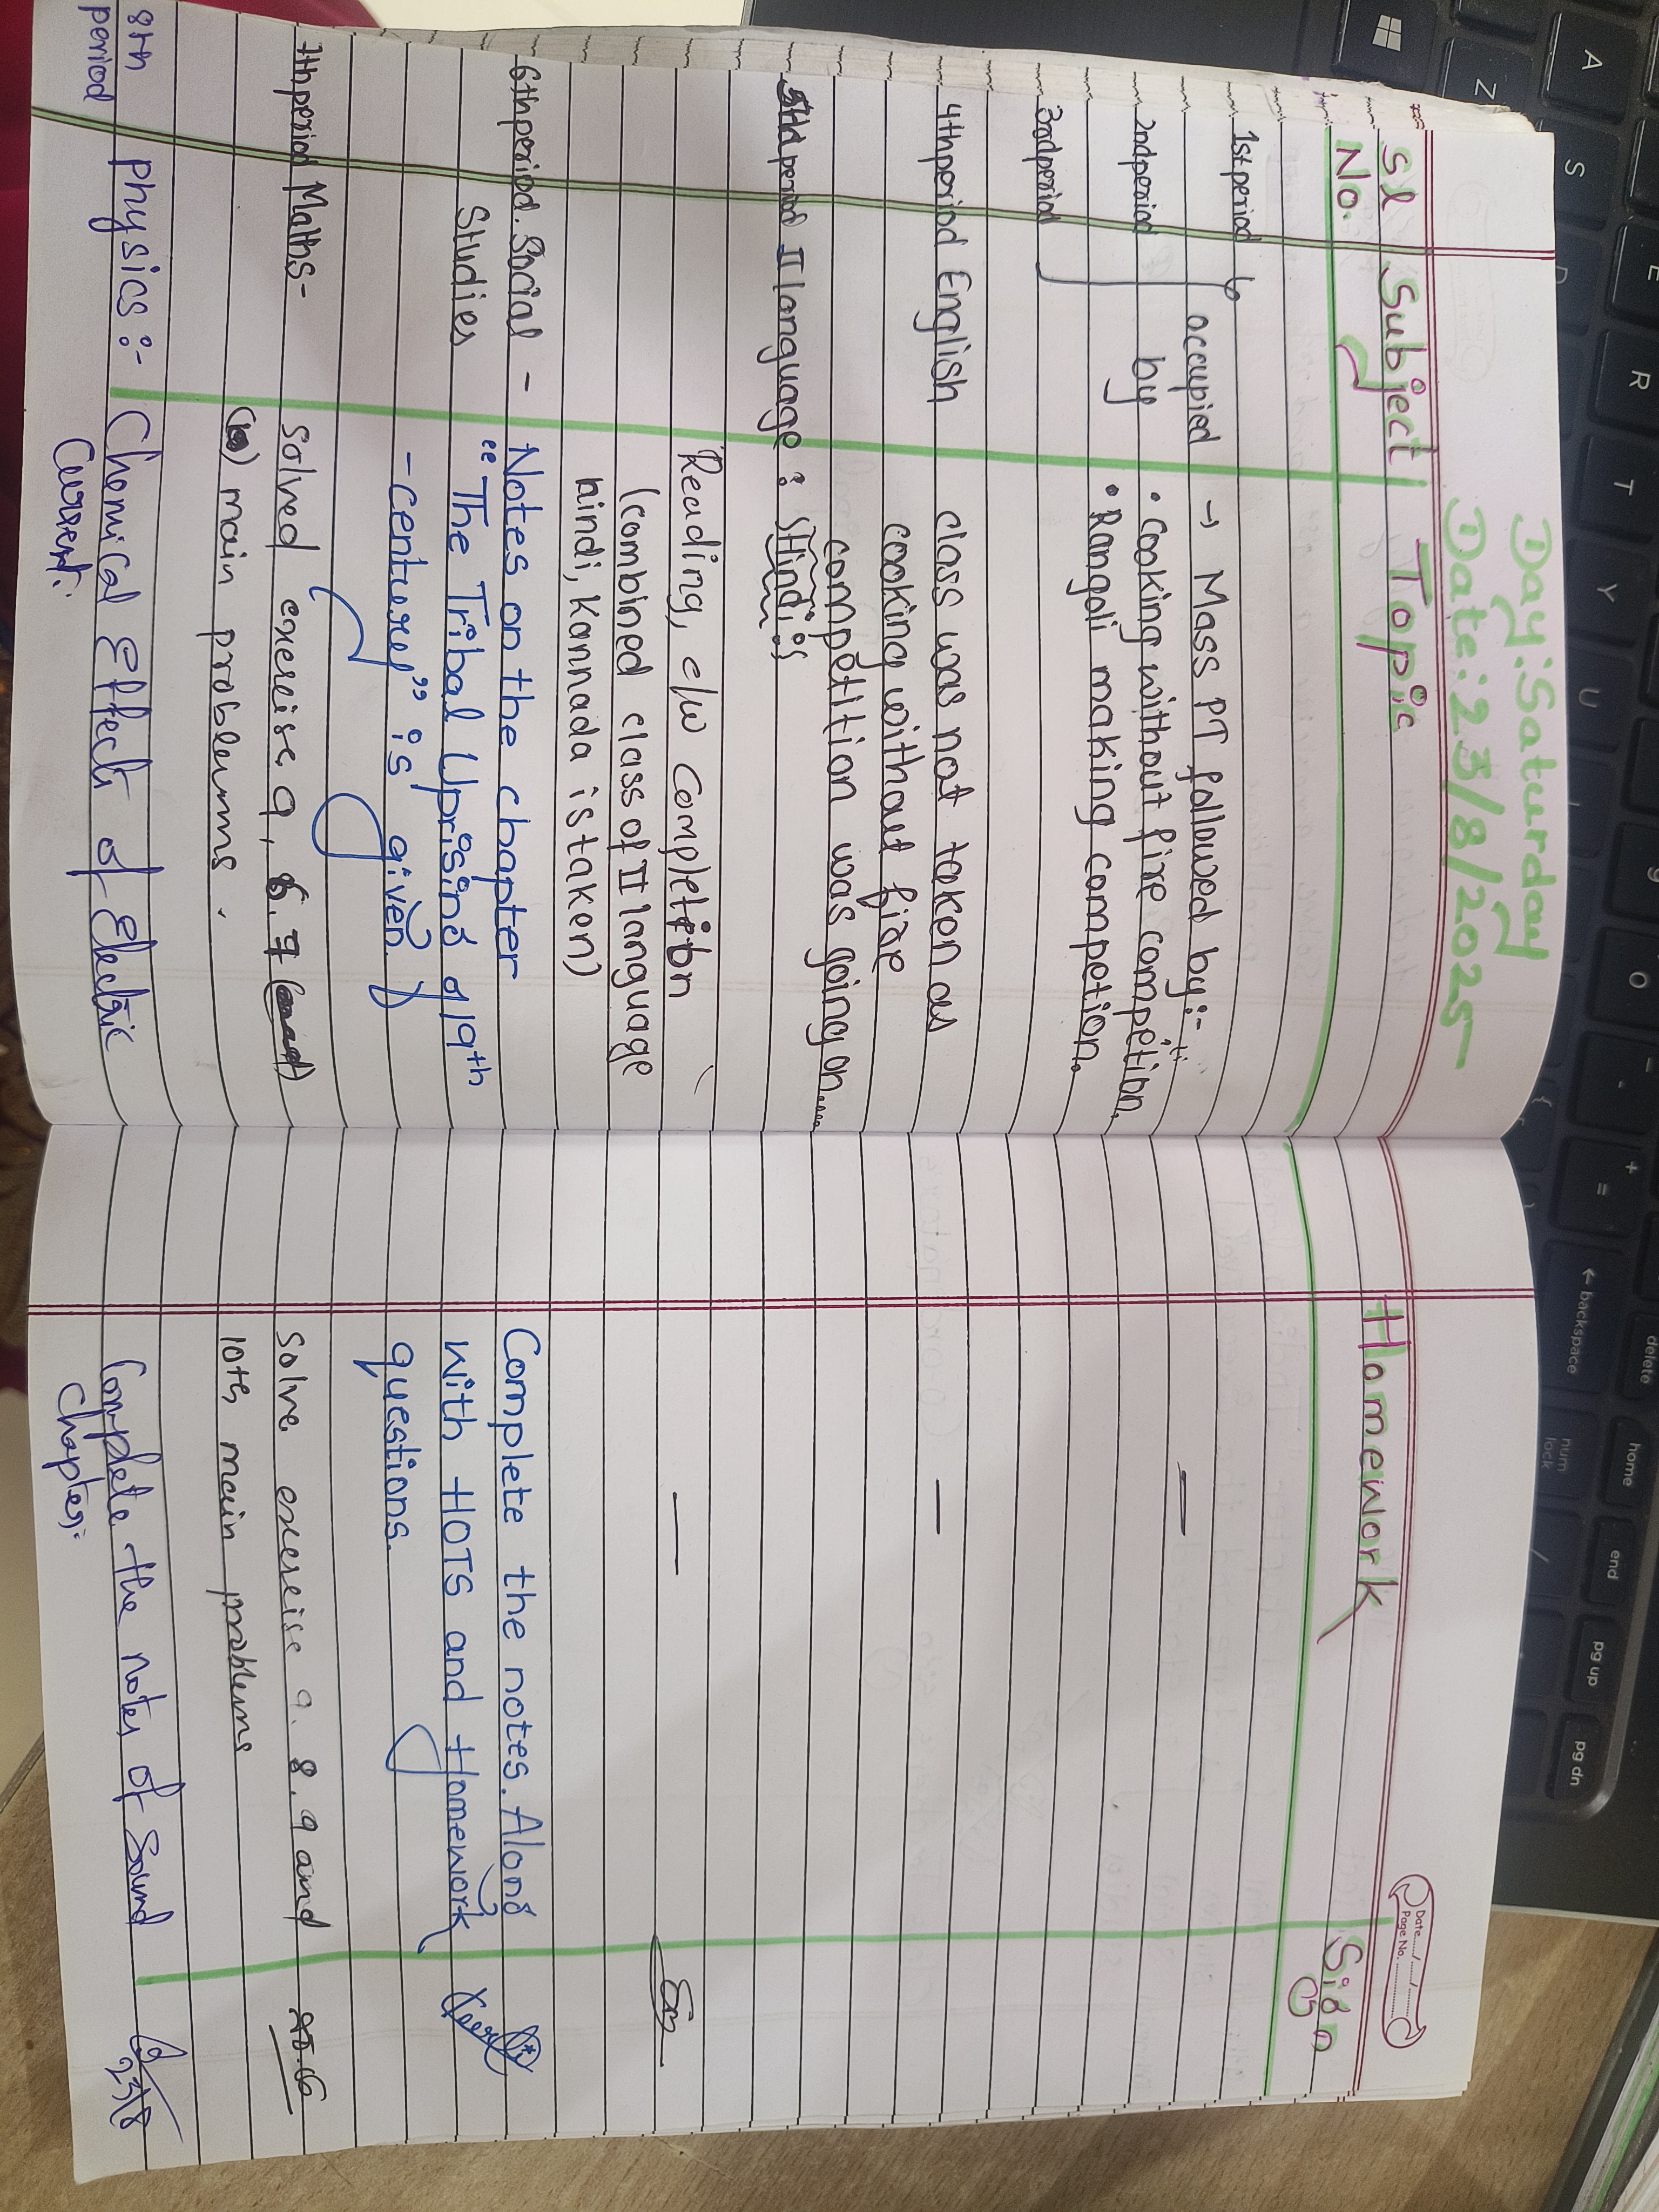 Day: Saturday
Date: 23/8/2025
Sl No.
Subject
Topic
Homework
Sign
Date
Page No.
1st period
2nd period
3rd period
occupied
by
→ Mass PT followed by:-
• Cooking without fire competion.
• Rangoli making competion.
—
4th period English
class was not taken as
cooking without fire
competition was going on.....
—
5th period II language : Hindi:
Reading, c/w completion
(combined class of II language
hindi, Kannada is taken)
—
6th period. Social -
Studies
Notes on the chapter
"The Tribal Uprising of 19th
- century" is given.
Complete the notes. Along
with HOTS and Homework
questions.
7th period Maths-
solved exereise 9, 6. 7
main problems.
solve exereise 9. 8. 9 and
10th main problems
8th period
Physics:-
Chemical Effects of Electric
Current:
Complete the notes of Sound
Chapter:
23/8
A
S
Z
E
D
R
T
Y
U
O
+
=
← backspace
delete
home
end
pg up
pg dn
num
lock
/